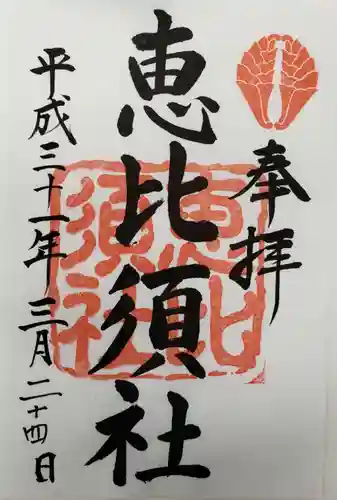 奉拝
恵比須社
恵比須社
平成三十一年三月二十四日